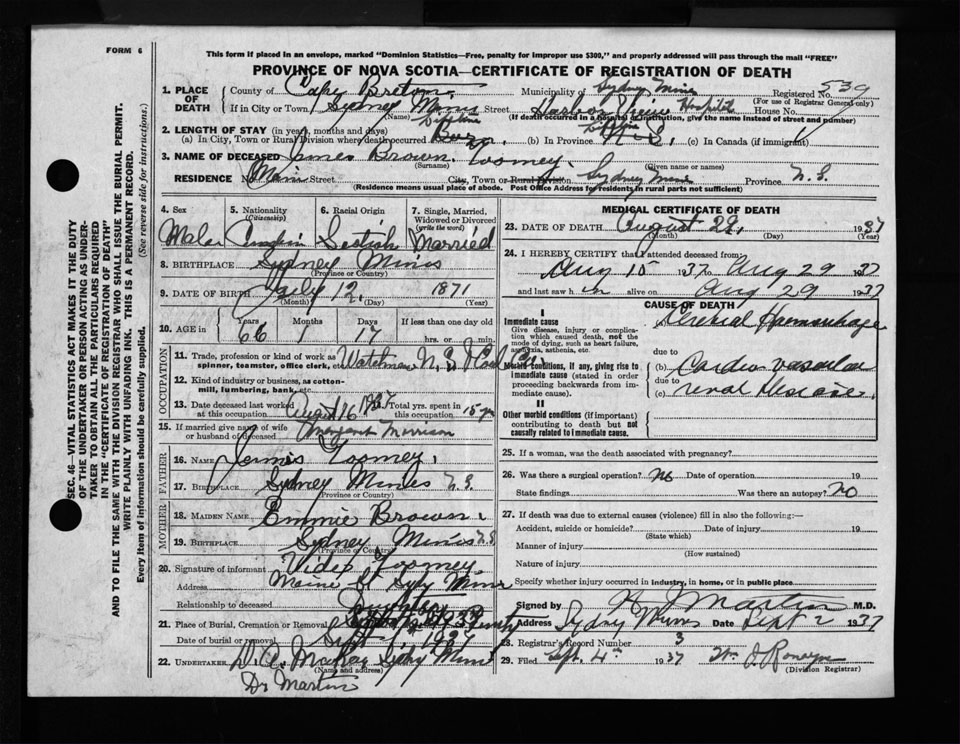 FORM 6
This form if placed in an envelope, marked "Dominion Statistics—Free, penalty for improper use $300," and properly addressed will pass through the mail "FREE"
PROVINCE OF NOVA SCOTIA—CERTIFICATE OF REGISTRATION OF DEATH
1. PLACE OF DEATH
County of Cape Breton Municipality of Sydney Mines Registered No. 539
(For use of Registrar General only)
If in City or Town Sydney Mines Street Harbor View Hospital House No.
(Name) (If death occurred in a hospital or institution, give the name instead of street and number)
2. LENGTH OF STAY (in years, months and days)
(a) In City, Town or Rural Division where death occurred (b) In Province (c) In Canada (if immigrant)
3. NAME OF DECEASED James Brown Toomey
(Surname) (Given name or names)
RESIDENCE No. Main Street City, Town or Rural Division Sydney Mines Province N.S.
(Residence means usual place of abode. Post Office Address for residents in rural parts not sufficient)
4. Sex Male
5. Nationality (Citizenship) Canadian
6. Racial Origin Scotish
7. Single, Married, Widowed or Divorced (write the word) Married
8. BIRTHPLACE Sydney Mines
(Province or Country)
9. DATE OF BIRTH July 12, 1871
(Month) (Day) (Year)
10. AGE in Years Months Days If less than one day old
66 1 17 hrs. or min.
OCCUPATION
11. Trade, profession or kind of work as spinner, teamster, office clerk, etc. Watchman N.S.
12. Kind of industry or business, as cotton-mill, lumbering, bank, etc.
13. Date deceased last worked at this occupation August 16 1937 Total yrs. spent in this occupation 15 yrs
15. If married give name of wife or husband of deceased Margaret Morrison
FATHER
16. NAME James Toomey
17. BIRTHPLACE Sydney Mines N.S.
(Province or Country)
MOTHER
18. MAIDEN NAME Emmie Brown
19. BIRTHPLACE Sydney Mines N.S.
(Province or Country)
20. Signature of informant Toomey
Address Main St Syd Mines
Relationship to deceased Daughter
21. Place of Burial, Cremation or Removal
Date of burial or removal Sept 1 1937
22. UNDERTAKER
(Name and address)
Dr Martin
MEDICAL CERTIFICATE OF DEATH
23. DATE OF DEATH August 29, 1937
(Month) (Day) (Year)
24. I HEREBY CERTIFY that I attended deceased from:
Aug 15 1937 to Aug 29 1937
and last saw him alive on Aug 29 1937
CAUSE OF DEATH
I
Immediate cause
Give disease, injury or complication which caused death, not the mode of dying, such as heart failure, asphyxia, asthenia, etc.
(a) Cerebral Haemorrhage
due to
Morbid conditions, if any, giving rise to immediate cause (stated in order proceeding backwards from immediate cause).
(b) Cardio vascular
due to
(c) renal disease
II
Other morbid conditions (if important) contributing to death but not causally related to immediate cause.
25. If a woman, was the death associated with pregnancy?
26. Was there a surgical operation? No Date of operation 19
State findings Was there an autopsy? No
27. If death was due to external causes (violence) fill in also the following:—
Accident, suicide or homicide? Date of injury 19
(State which)
Manner of injury
(How sustained)
Nature of injury
Specify whether injury occurred in industry, in home, or in public place
Signed by Martin M.D.
Address Sydney Mines Date Sept 2 1937
28. Registrar's Record Number 3
29. Filed Sept. 4th 1937
(Division Registrar)
SEC. 46—VITAL STATISTICS ACT MAKES IT THE DUTY
OF THE UNDERTAKER OR PERSON ACTING AS UNDER-
TAKER TO OBTAIN ALL THE PARTICULARS REQUIRED
IN THE "CERTIFICATE OF REGISTRATION OF DEATH"
AND TO FILE THE SAME WITH THE DIVISION REGISTRAR WHO SHALL ISSUE THE BURIAL PERMIT.
WRITE PLAINLY WITH UNFADING INK. THIS IS A PERMANENT RECORD.
Every item of information should be carefully supplied. (See reverse side for instructions.)